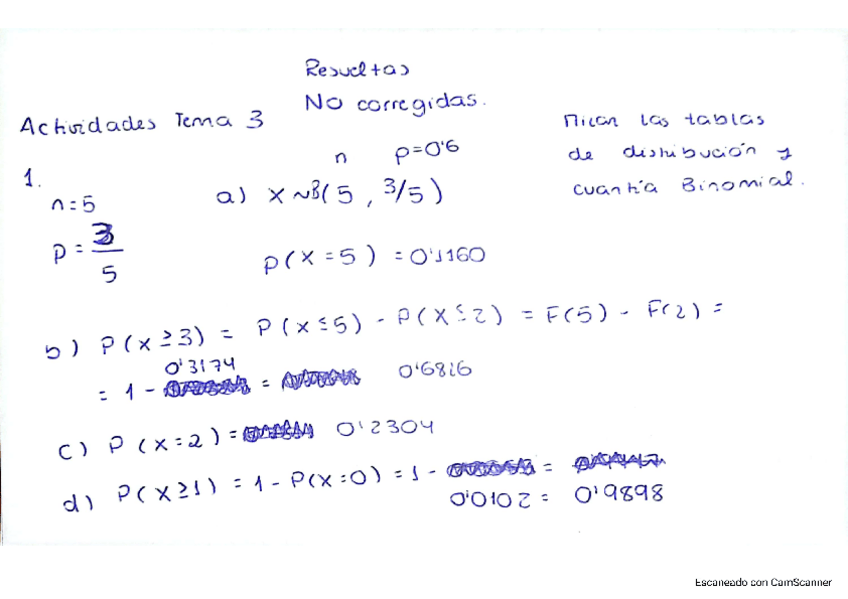 Resueltas
No corregidas.
Actividades Tema 3
Mirar las tablas
de distribución y
cuantía Binomial.
1.
n=5
p = 3/5
n p=0'6
a) X ~B(5, 3/5)
P(X=5) = 0'1160
b) P(X≥3) = P(X≤5) - P(X≤2) = F(5) - F(2) =
0'3174
= 1 - = 0'6826
c) P(X=2) = 0'2304
d) P(X≥1) = 1 - P(X=0) = 1 - =
0'0102 = 0'9898
Escaneado con CamScanner